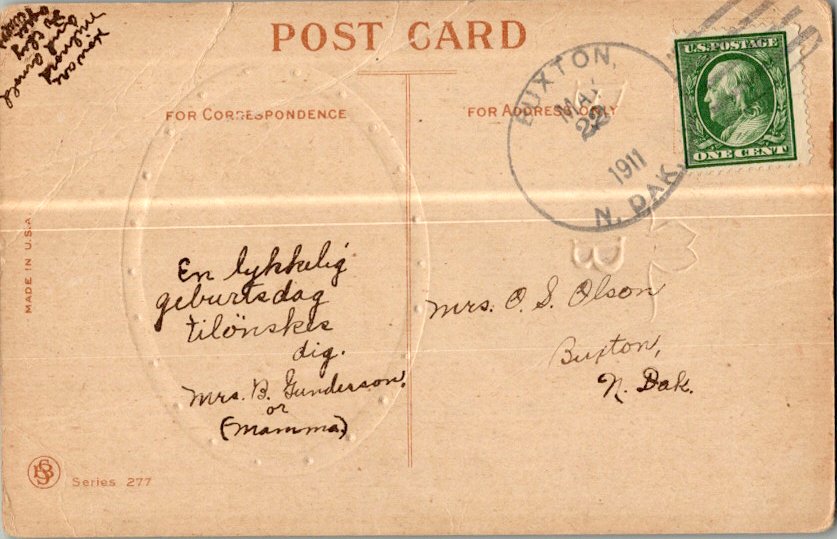 POST CARD
FOR CORRESPONDENCE
FOR ADDRESS ONLY
BUXTON,
MAY
22
1911
N. DAK.
U.S. POSTAGE
ONE CENT
MADE IN U.S.A
En lykkelig
geburtsdag
tilönskes
dig.
Mrs. B. Gunderson,
or
(Mamma)
Mrs. O. S. Olson
Buxton,
N. Dak.
B
SB
Series 277